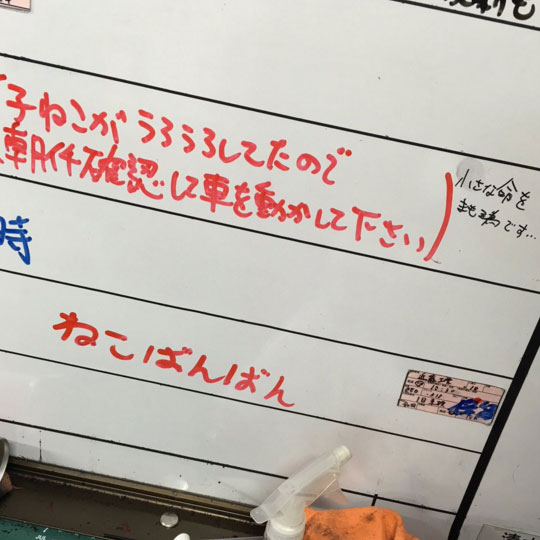 子ねこがうろうろしてたので
朝イチ確認して車を動かして下さい
小さな命を
まもる為です…
時
ねこばんばん